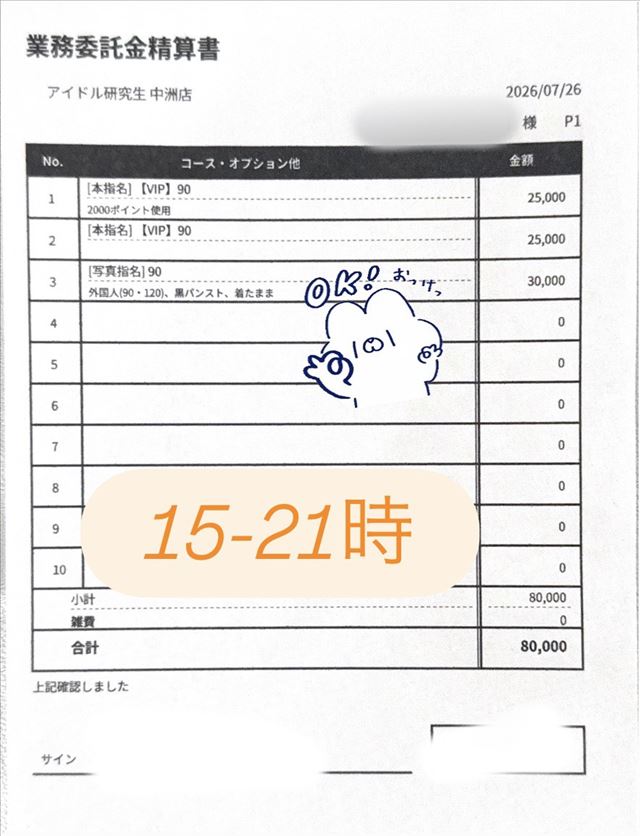 業務委託金精算書
アイドル研究生 中洲店
2026/07/26
様 P1
No. コース・オプション他 金額
1 [本指名]【VIP】90 25,000
2000ポイント使用
2 [本指名]【VIP】90 25,000
3 [写真指名] 90 30,000
外国人(90・120)、黒パンスト、着たまま
OK! おっけっ
4 0
5 0
6 0
7 0
8 0
15-21時
9 0
10 0
小計 80,000
雑費 0
合計 80,000
上記確認しました
サイン